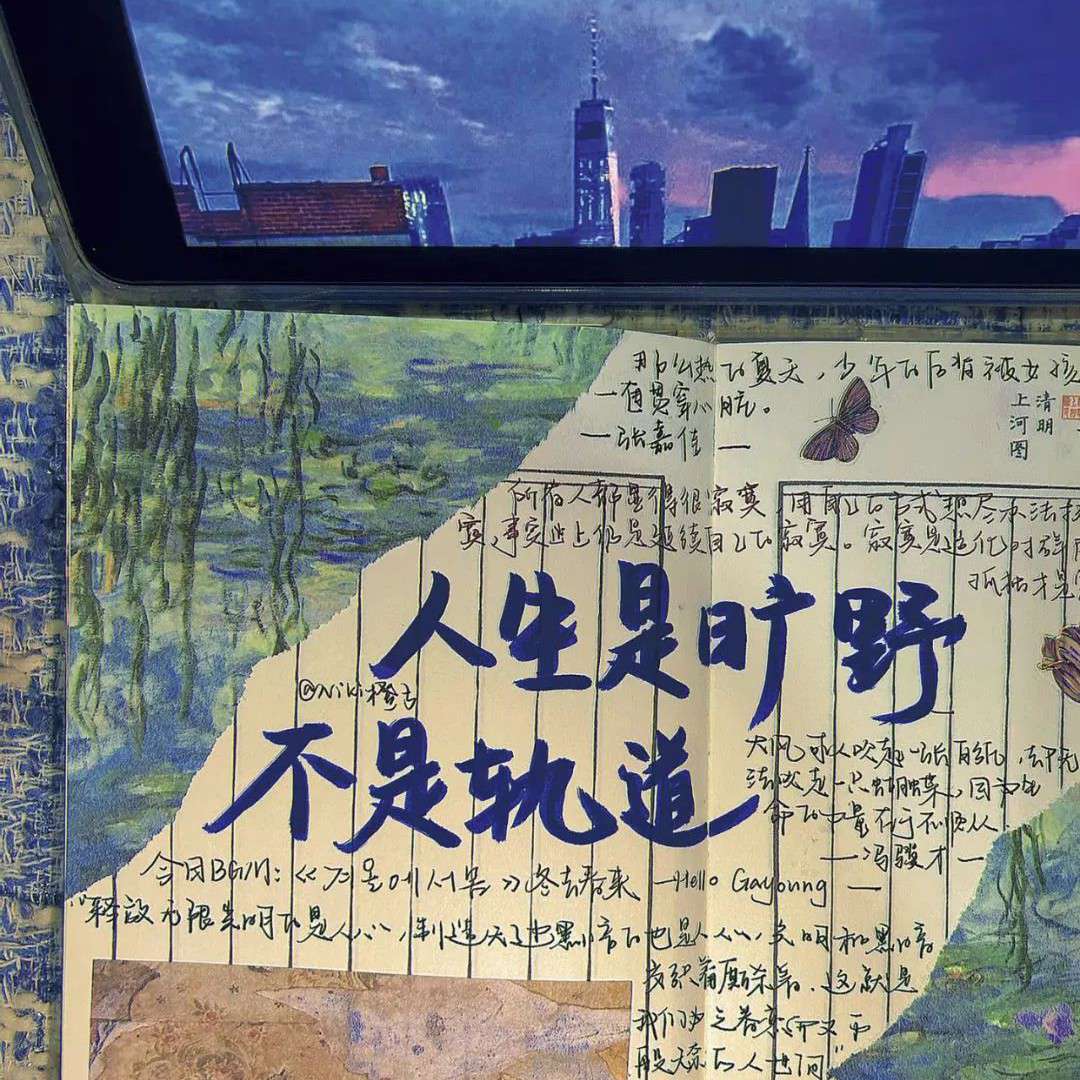 那么热的夏天，少年的后背被女孩
一
张嘉佳
清明
上河图
所有人都是得很寂寞，用自己的方式想尽办法
事实上仍是延续自己的寂寞。寂寞是造化对群
孤独才是
人生是旷野
@Niki橙子
不是轨道
大风可以吹起一张白纸，却无
法吹走一只蝴蝶，因为生
命的力量在于不顺从
—冯骥才—
今日BGM：《겨울에서 봄》冬去春来 —Hello Gayoung—
"释放无限光明的是人心，制造无边黑暗的也是人心，光明和黑暗
交织着厮杀着，这就是
我们为之眷恋而又万
般无奈的人世间"